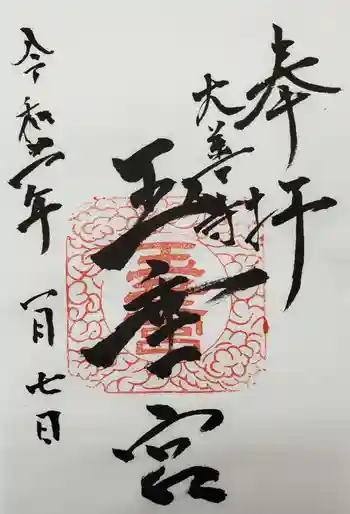 奉拝
大善寺
玉垂宮
令和年
月七日
玉垂宮